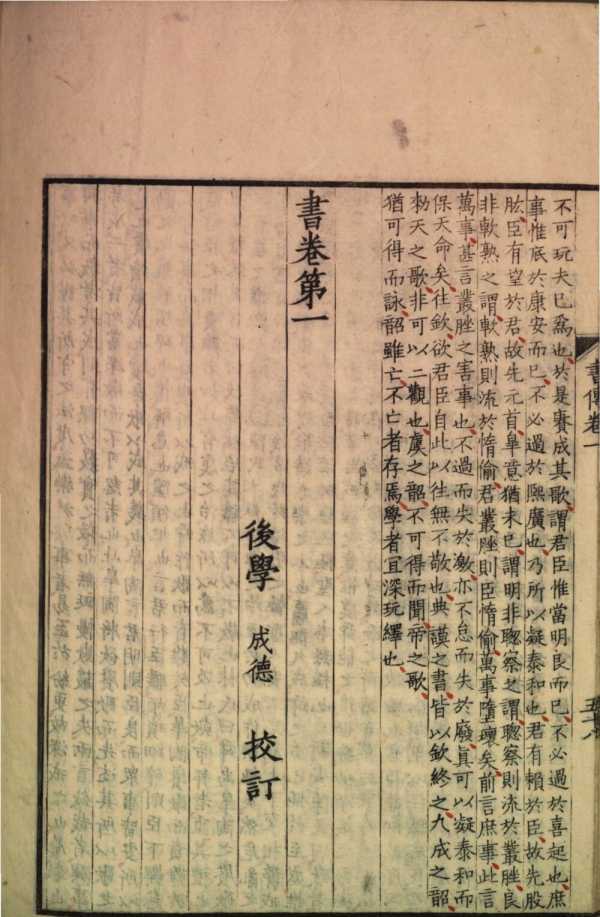 書傳卷一
不可玩夫已為也於是賡成其歌謂君臣惟當明良而已不必過於喜起也庶
事惟底於康安而已不必過於熙廣也乃所以凝泰和也君有賴於臣故先股
肱臣有望於君故先元首皐意猶未已謂明非聰察之謂聰察則流於叢脞良
非軟熟之謂軟熟則流於惰偷君叢脞則臣惰偷萬事墮壞矣前言庶事此言
萬事甚言叢脞之害事也不過而失於激亦不怠而失於廢真可以凝泰和而
保天命矣往欽欲君臣自此以往無不敬也典謨之書皆以欽終之九成之韶
勑天之歌非可以二觀也虞之韶不可得而聞帝之歌
猶可得而詠韶雖亡不亡者存焉學者宜深玩繹也
書卷第一
後學 成德 校訂